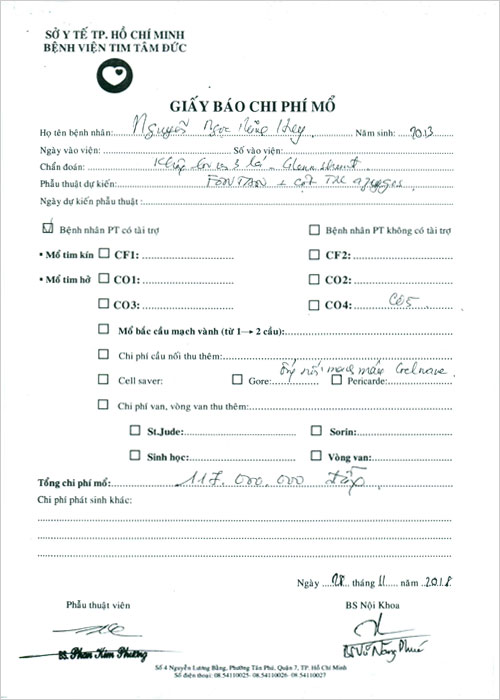 SỞ Y TẾ TP. HỒ CHÍ MINH
BỆNH VIỆN TIM TÂM ĐỨC
GIẤY BÁO CHI PHÍ MỔ
Họ tên bệnh nhân: Nguyễn Ngọc Hồng Huy Năm sinh: 2013
Ngày vào viện: Số vào viện:
Chẩn đoán: Không lỗ van 3 lá - Glenn shunt
Phẫu thuật dự kiến: FONTAN +
Ngày dự kiến phẫu thuật:
Bệnh nhân PT có tài trợ Bệnh nhân PT không có tài trợ
• Mổ tim kín CF1: CF2:
• Mổ tim hở CO1: CO2:
CO3: CO4: C05
Mổ bắc cầu mạch vành (từ 1→ 2 cầu):
Chi phí cầu nối thu thêm:
ống nối mạch máu Gelweave
Cell saver: Gore: Pericarde:
Chi phí van, vòng van thu thêm:
St.Jude: Sorin:
Sinh học: Vòng van:
Tổng chi phí mổ: 117.000.000
Chi phí phát sinh khác:
Ngày 28 tháng 11 năm 2018
Phẫu thuật viên BS Nội Khoa
BS. Phan Kim Phương BS Vũ Năng Phúc
Số 4 Nguyễn Lương Bằng, Phường Tân Phú, Quận 7, TP. Hồ Chí Minh
Số điện thoại: 08.54110025- 08.54110026- 08.54110027